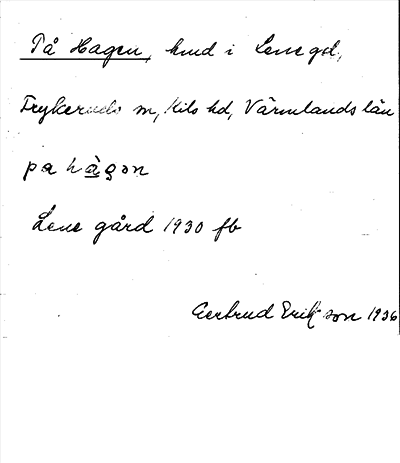 På Hagen, hmd i Lene gd,
Frykeruds sn, Kils hd, Värmlands län
pa hàgon
Lene gård 1930 fb
Gertrud Erikson 1936